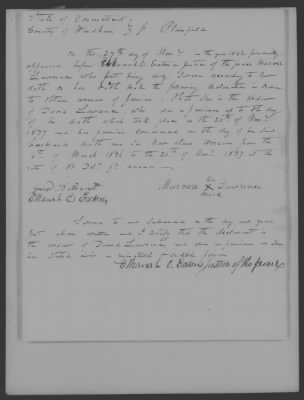 State of Connecticut
County of Windham } ss Plainfield
On the 29th day of Nov. in the year 1837 personally
appeared before Elkanah C. Eaton a Justice of the peace Marvin
Lawrence who first being duly Sworn according to law
doth on her oath make the following declaration in order
to obtain arrears of pension: That She is the widow
of David Lawrence who was a pensioner at to the day
of his death which took place in the 20th of Novr
1837 and has pension commenced on the day of his said
husband's death and She Now claims arrears from the
4th of March 1836 to the 20th of Novr 1837 at the
rate of 80 Dol. pr annum
her
Marvin X Lawrence
mark
Elkanah C. Eaton
Sworn to and Subscribed in the day and year
last above written and I certify that the declarant is
the widow of David Lawrence and was a pensioner as She
has Stated and is a respectable & credible person
Elkanah C. Eaton Justice of the peace